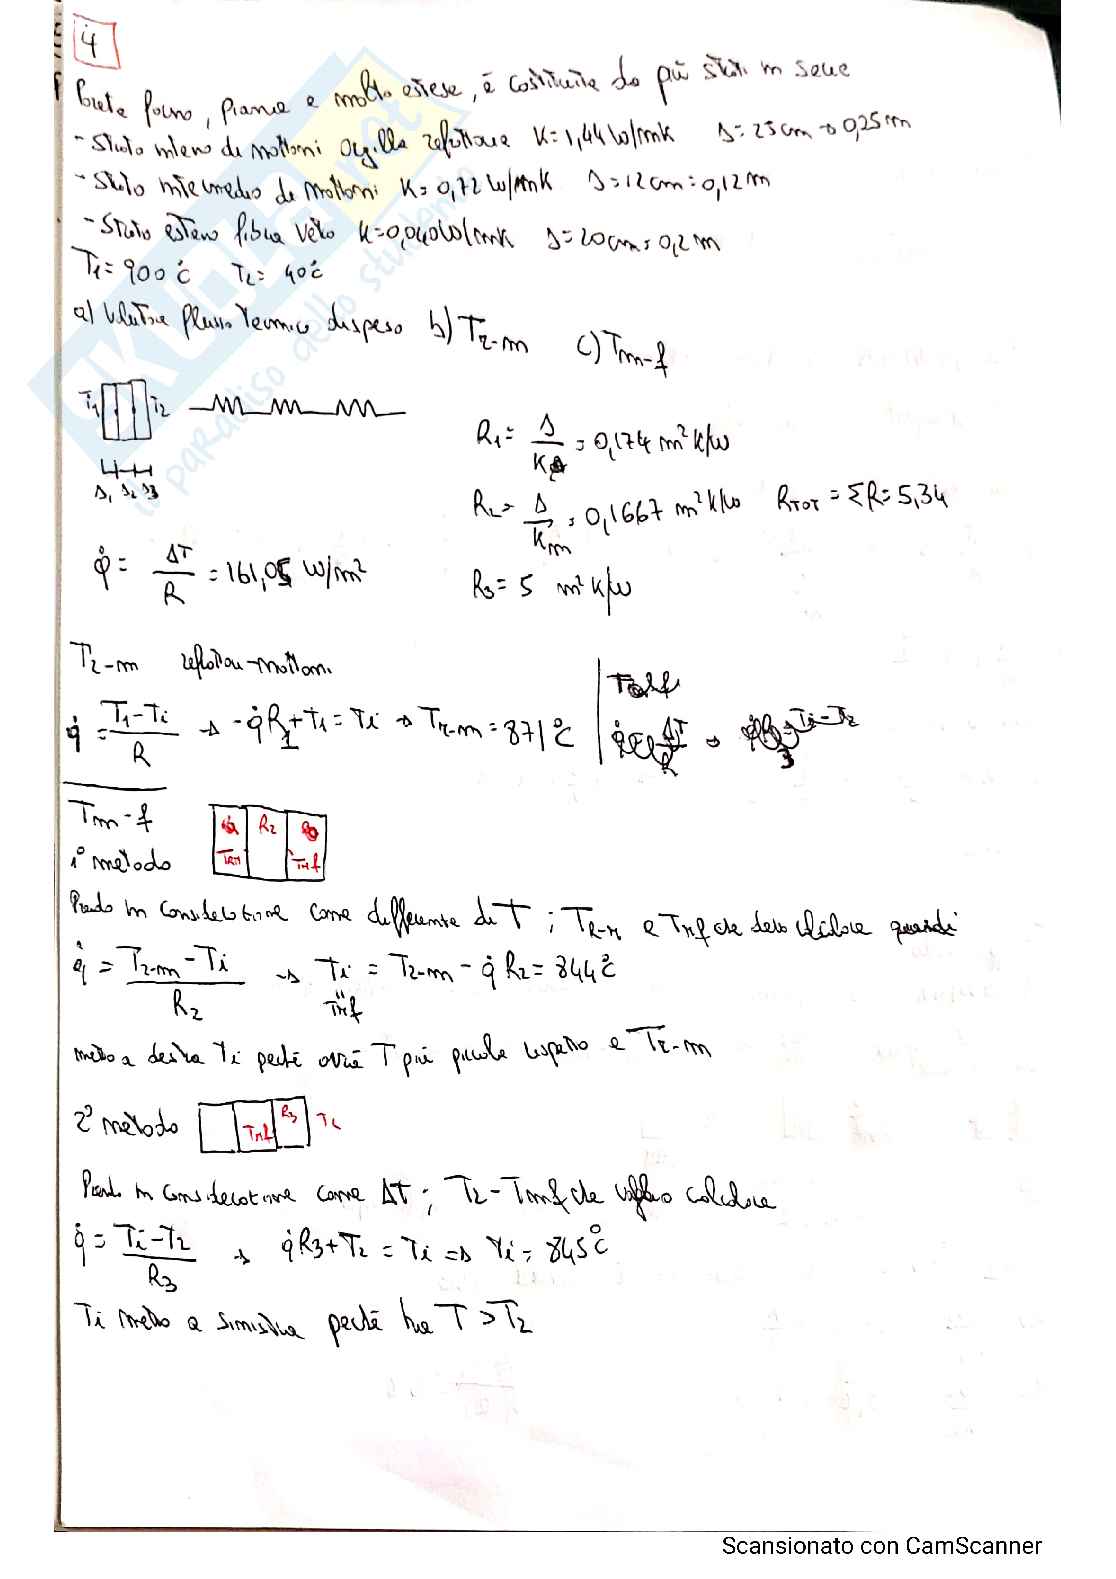 4
Parete forno, piana e molto estesa, è costituita da più strati in serie
- Strato interno di mattoni argilla refrattaria K=1,44 W/mK s=25cm → 0,25m
- Strato intermedio di mattoni K=0,72 W/mK s=12cm=0,12m
- Strato esterno fibra vetro K=0,040W/mK s=20cm=0,2m
T1=900°C T2=40°C
a) Valutare flusso termico disperso b) Tr-m c) Tm-f
T1 T2
s1 s2 s3
R1= s/K = 0,174 m²K/W
R2= s/Km = 0,1667 m²K/W RTOT = ΣR = 5,34
q̇ = ΔT/R = 161,05 W/m²
R3= 5 m²K/W
Tr-m refrattari-mattoni
q̇ = (T1-Ti)/R → -q̇R1+T1=Ti → Tr-m=871°C
Tm-f
1° metodo
R2
TRM Tmf
Prendo in considerazione come differenza di T ; TR-M e Tmf che devo calcolare quindi
q̇ = (Tr-m - Ti)/R2 → Ti = Tr-m - q̇ R2 = 844°C
Tmf
metto a destra Ti perché avrà T più piccola rispetto a Tr-m
2° metodo
Tmf R3 T2
Prendo in considerazione come ΔT ; T2 - Tmf che voglio calcolare
q̇ = (Ti-T2)/R3 → q̇R3+T2 = Ti => Ti = 845°C
Ti metto a sinistra perché ha T > T2
SKUOLA.net
il paradiso dello studente
Scansionato con CamScanner